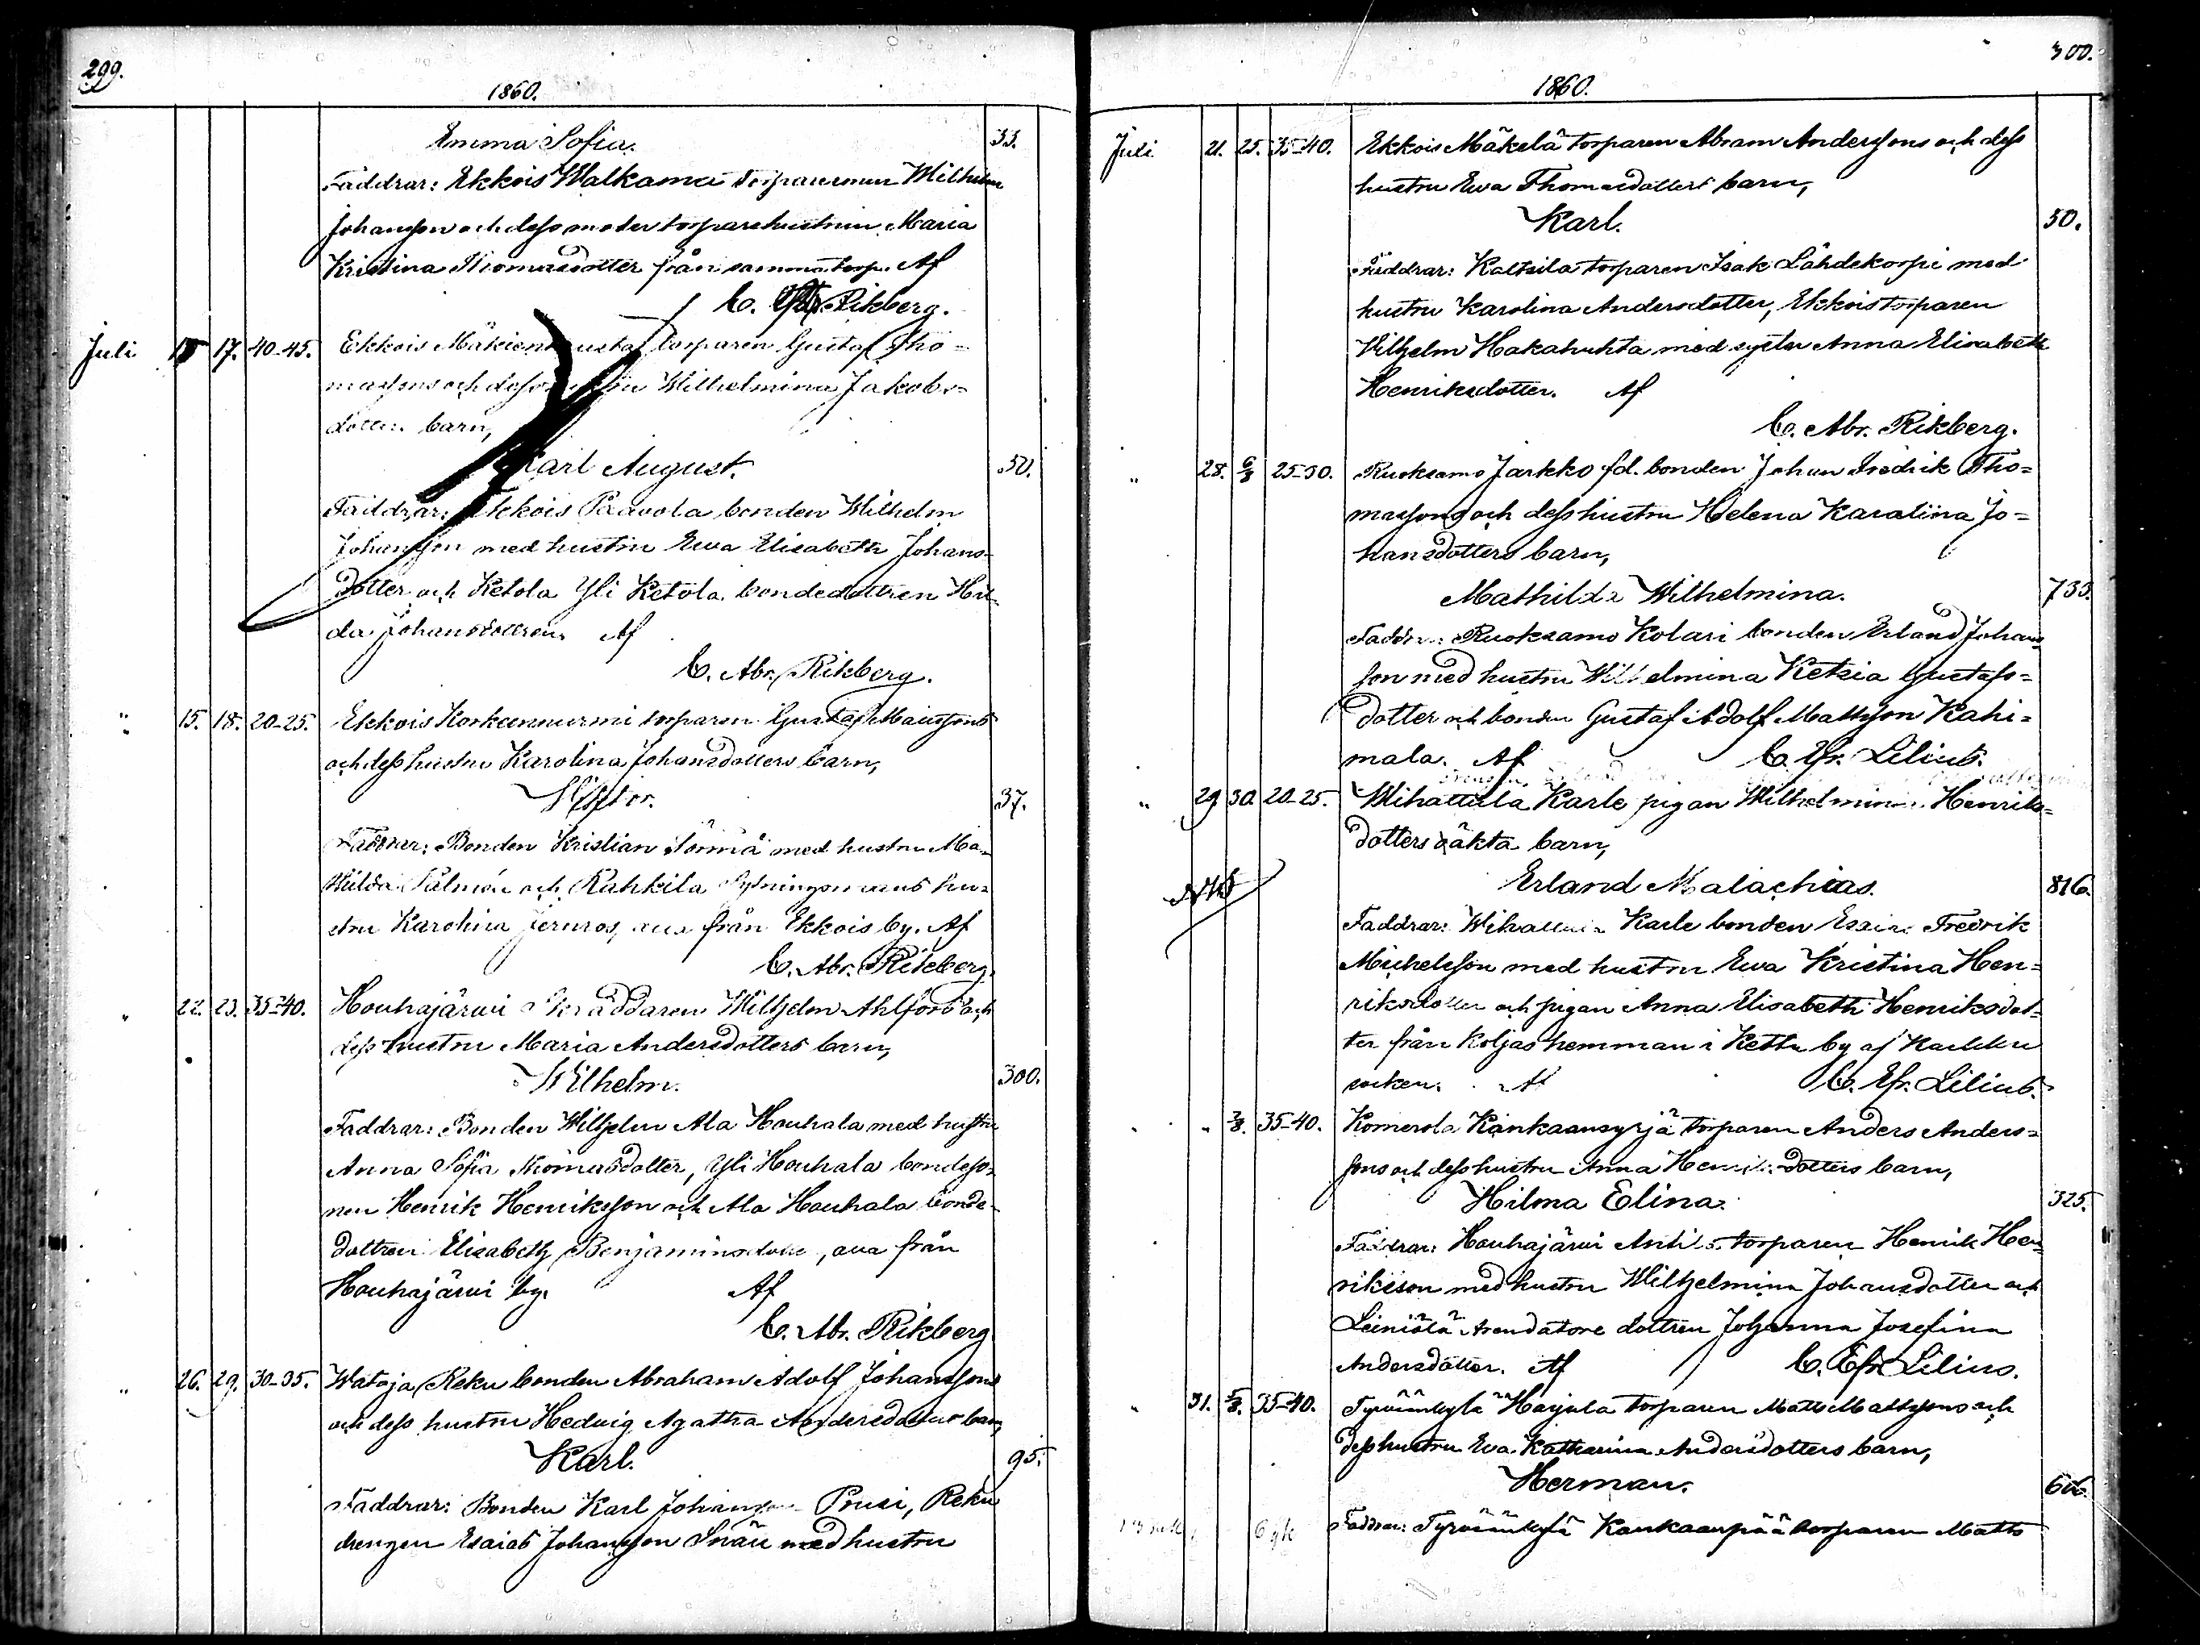 299.
1860.
Emma Sofia. 33.
Faddrar: Ekkois Walkama torparesonen Wilhelm
Johansson och dess moder torparehustrun Maria
Kristina Thomasdotter från samma torp. Af
C. Rikberg.
Juli 15 17. 40-45. Ekkois torparen Gustaf Tho=
massons och dess Wilhelmina Jakobs=
dotters barn,
Karl August. 50.
Faddrar: Ekkois Paavola bonden Wilhelm
Johansson med hustru Ewa Elisabeth Johans=
dotter och Ketola Yli Ketola bondedottren Hil=
da Johansdotter. Af
C. Abr. Rikberg.
" 15. 18. 20-25. Ekkois Korkeennurmi torparen Gustaf
och dess hustru Karolina Johansdotters barn,
Wiktor. 37.
Faddrar: Bonden Kristian med hustru Ma=
thilda och Rahkila hu=
stru Karolina från Ekkois by. Af
C. Abr. Rikberg.
" 22. 23. 35-40. Houhajärwi Skräddaren Wilhelm Ahlfors och
dess hustru Maria Andersdotters barn,
Wilhelm. 300.
Faddrar: Bonden Wilhelm Ala Houhala med hustru
Anna Sofia Thomasdotter, Yli Houhala bondeso=
nen Henrik Henriksson och Ala Houhala bonde=
dottren Elisabeth Benjaminsdotter, från
Houhajärwi by. Af
C. Abr. Rikberg
" 26. 29. 30-35. Wataja Reku bonden Abraham Adolf Johanssons
och dess hustru Hedwig Agatha Andersdotters barn,
Karl. 95.
Faddrar: Bonden Karl Johansson Prusi, Reku
drengen Esaias Johansson med hustru
300.
1860.
Juli 21. 25. 35-40. Ekkois Mäkelä torparen Abram Anderssons och dess
hustru Ewa Thomasdotters barn,
Karl. 50.
Faddrar: Kaltsila torparen Isak Lähdekorpi med
hustru Karolina Andersdotter, Ekkois torparen
Vilhelm Hakahuhta med syster Anna Elisabeth
Henriksdotter. Af
C. Abr. Rikberg.
" 28. 6/8 25-30. Ruoksamo Jarkko fd. bonden Johan Fredrik Tho=
massons och dess hustru Helena Karolina Jo=
hansdotters barn,
Mathilda Wilhelmina. 733.
Faddrar: Ruoksamo Kolari bonden Erland Johans=
son med hustru Wilhelmina Ketzia Gustafs=
dotter och bonden Gustaf Adolf Mattsson Kahi=
mala. Af C. Efr. Lilius.
" 29 30. 20-25. Wihattula Karle pigan Wilhelmina Henriks=
dotters oäkta barn,
Erland Malachias. 816.
Faddrar: Wihattula Karle bonden Esaias Fredrik
Michelsson med hustru Ewa Kristina Hen=
riksdotter och pigan Anna Elisabeth Henriksdot=
ter från Koljas hemman i by af Karkku
socken. Af C. Efr. Lilius.
" " 2/8. 35-40. Komerola Kankaansyrjä torparen Anders Anders=
sons och dess hustru Anna Henriksdotters barn,
Hilma Elina. 325.
Faddrar: Houhajärwi Anttila torparen Henrik Hen=
riksson med hustru Wilhelmina Johansdotter och
Leiniälä Arendators dottren Johanna Josefina
Andersdotter. Af C. Efr. Lilius.
" 31. 5/8. 35-40. Tyrväänkylä Harjula torparen Matts Mattssons och
dess hustru Eva Katharina Andersdotters barn,
Herman. 606.
Faddrar: Tyrväänkylä Kankaanpää torparen Matts